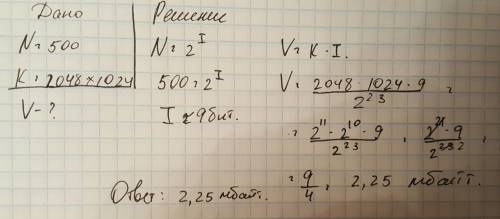 Дано
N = 500
K = 2048×1024
V - ?
Решение
N = 2^I
500 = 2^I
I ≈ 9 бит.
V = K · I.
V = 2048 · 1024 · 9 / 2^23 =
= 2^11 · 2^10 · 9 / 2^23 = 2^21 · 9 / 2^23 2
= 9/4 = 2,25 мбайт.
Ответ: 2,25 мбайт.